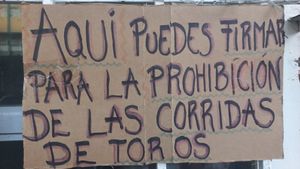 AQUI PUEDES FIRMAR
PARA LA PROHIBICION
DE LAS CORRIDAS
DE TOROS